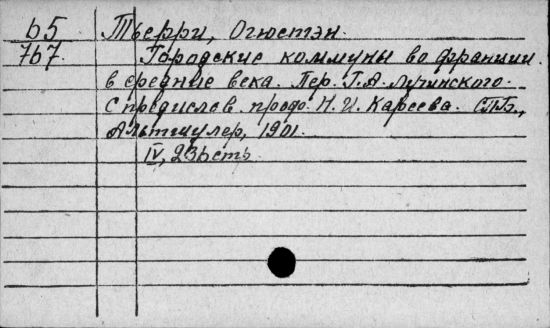 б5 Тьерри, Огюстэн.
7б7. Городские коммуны во франции.
в средние века. Пер. Г.А. Лучинского.
С предислов. проф. Н.И. Кареева. СПБ.,
Альтшулер, 1901.
IV, 23б стб.